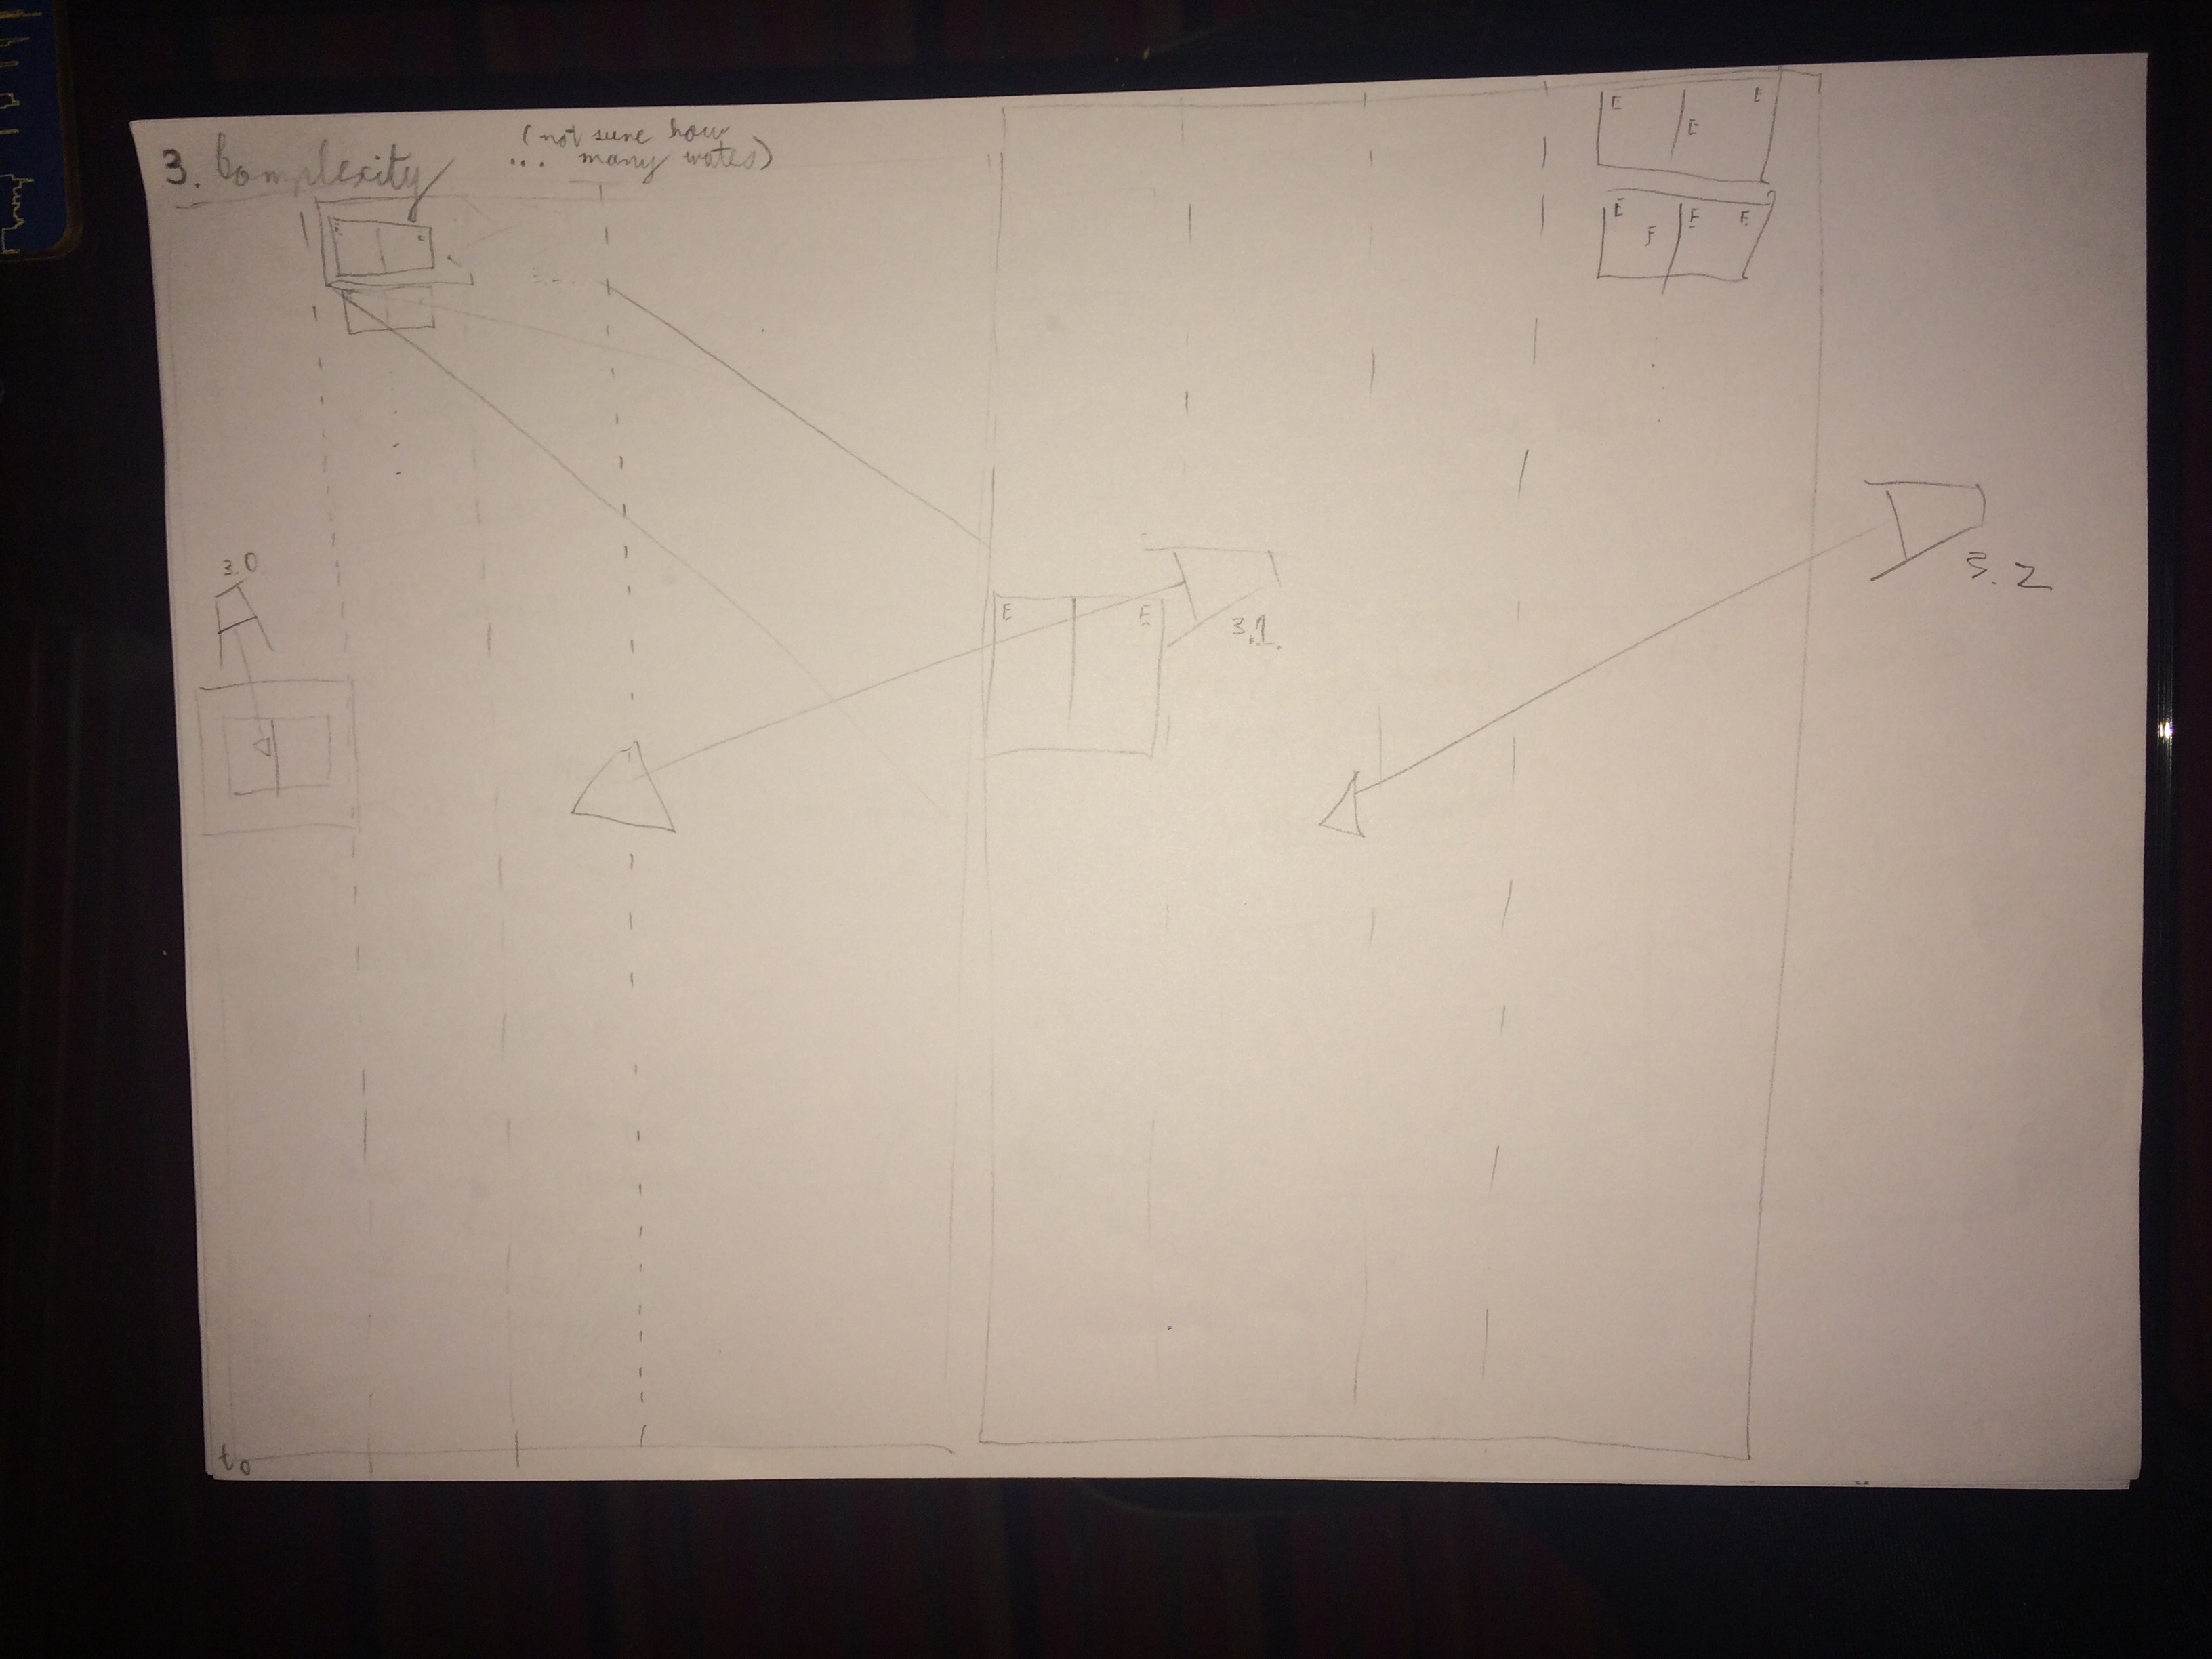 3. Complexity
(not sure how
... many wotes)
E E
E
E E E
F
3.0
E E
3.1.
3.2
t0